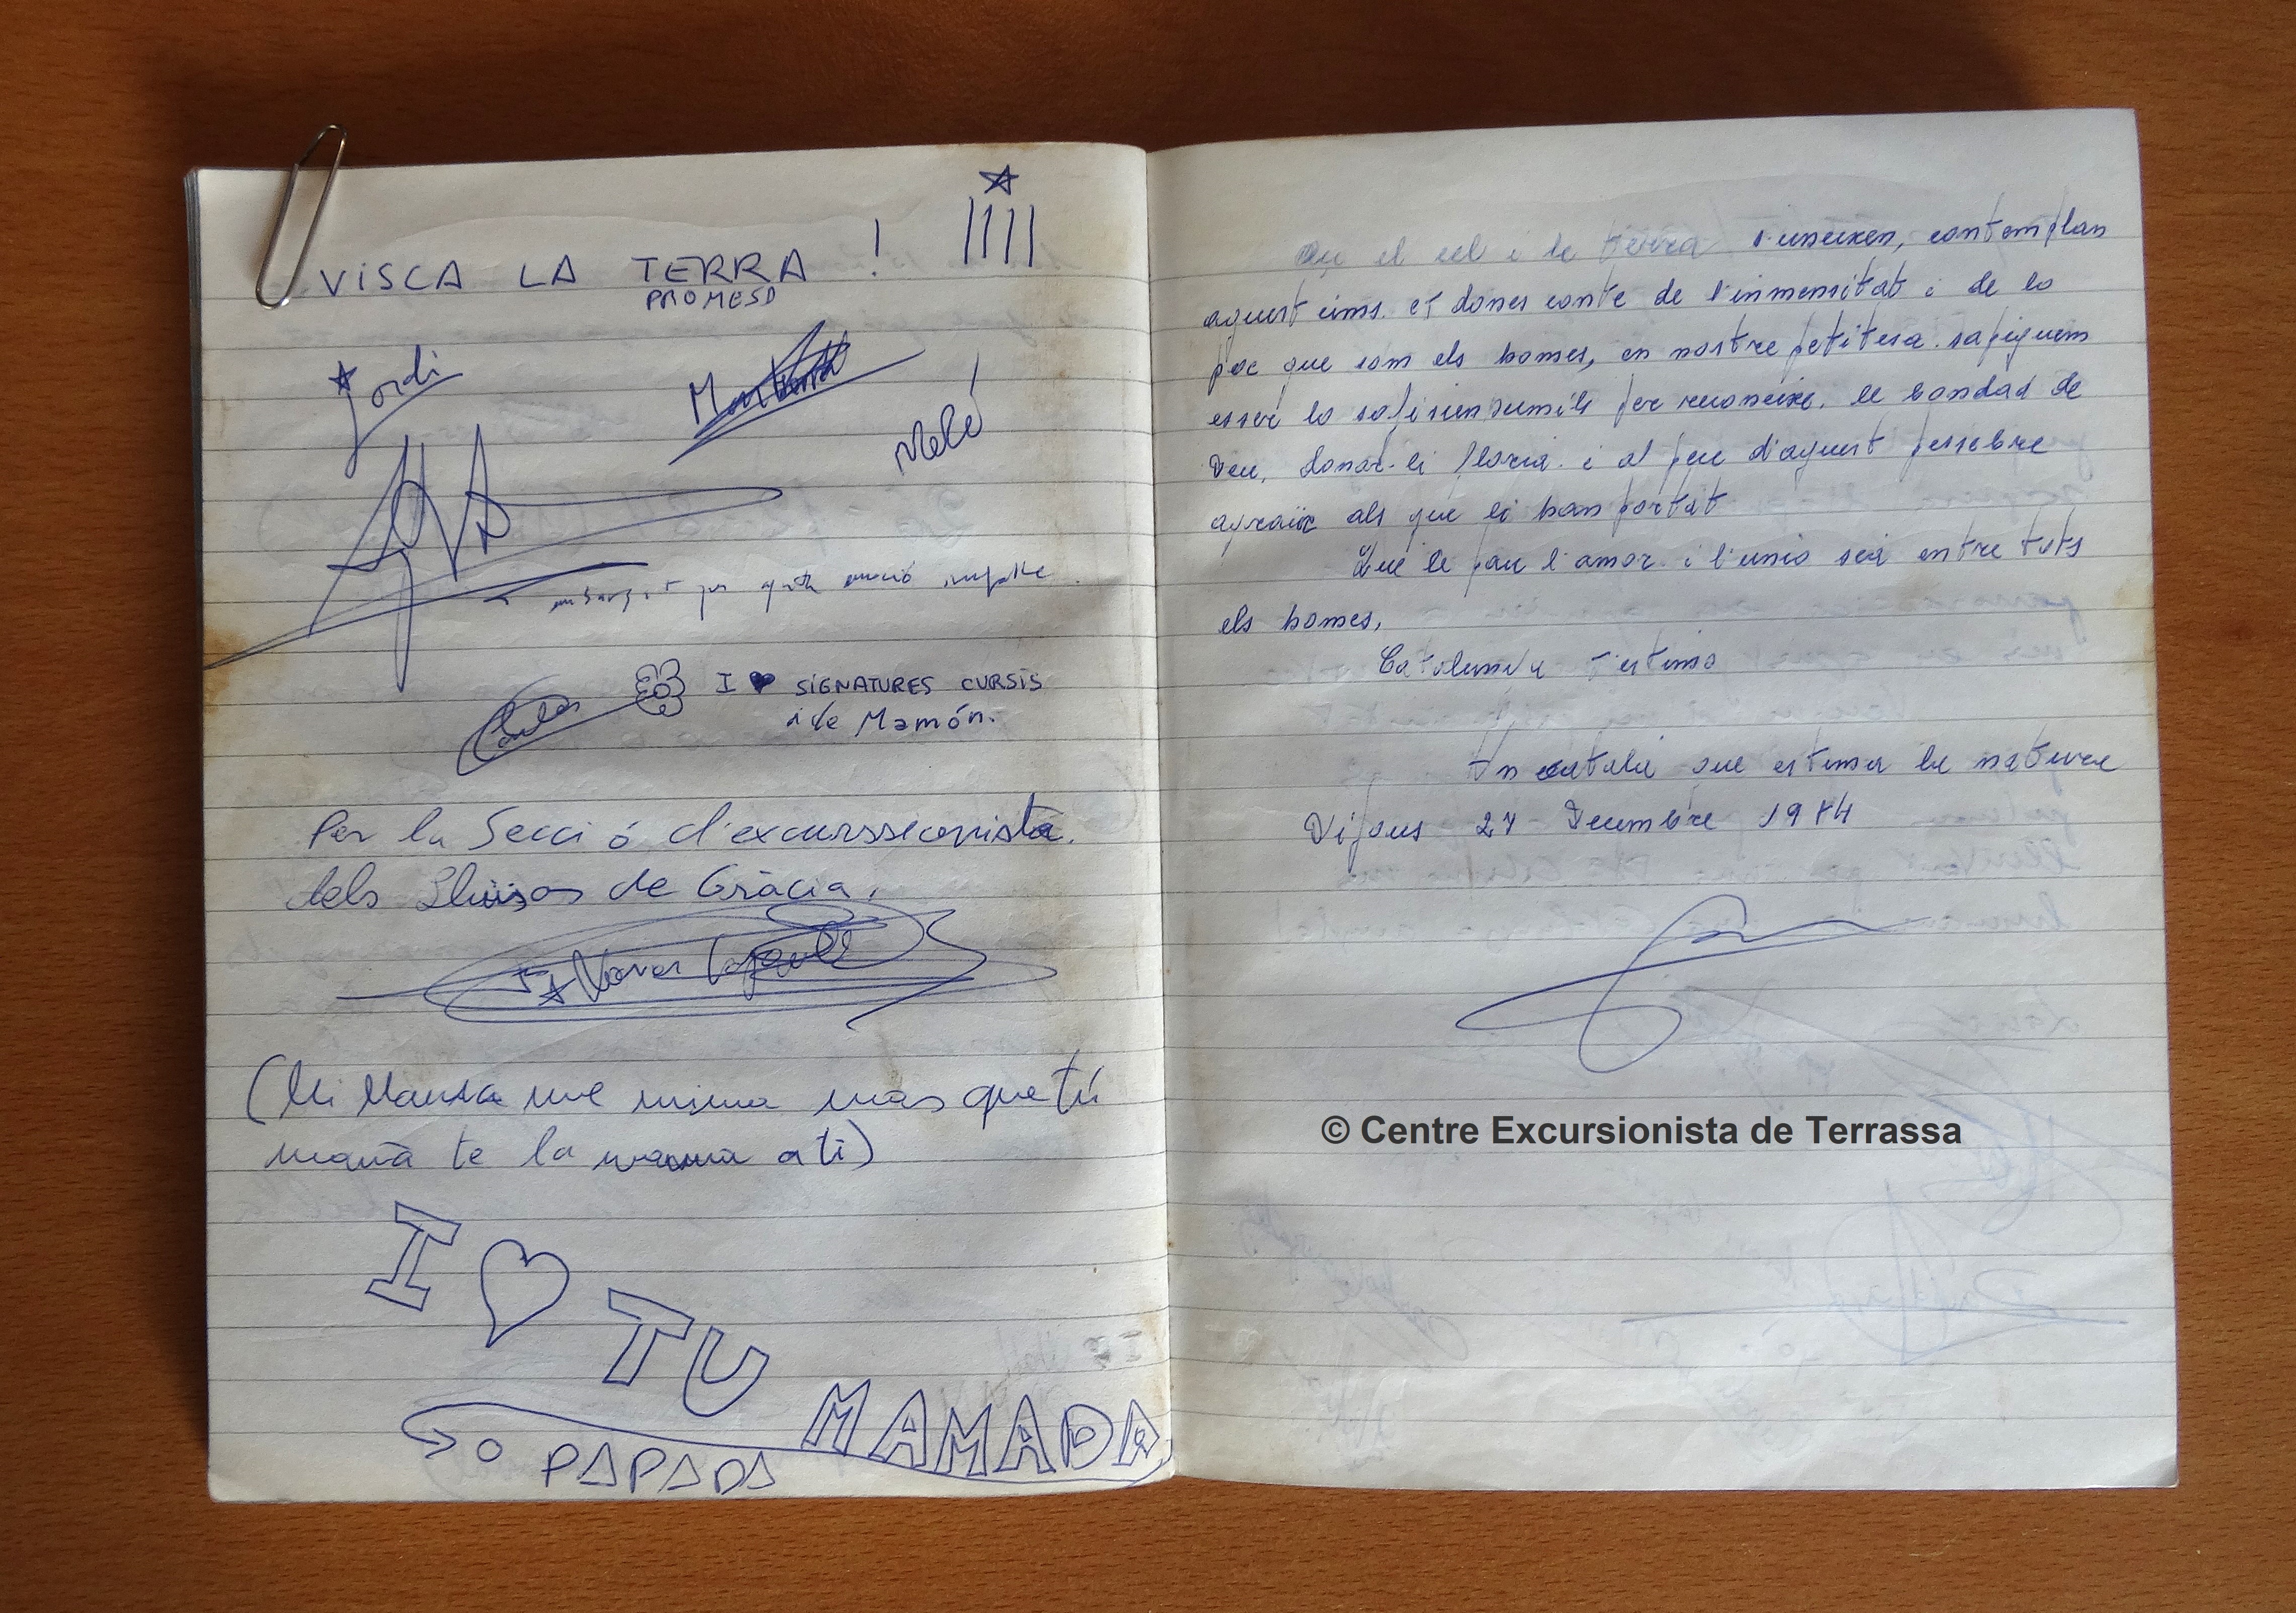 VISCA LA TERRA !
PROMESA
Jordi
Melé!
I ♥ SIGNATURES CURSIS
i de Mamón.
Per la Secció d'excurssionista.
dels Lluïsos de Gràcia.
(Mi Mansa me mima mas que tú
mamá te la mama a ti)
I ♥ TU
MAMADA
O PAPADA
Aqui el cel i la terra s'uneixen, contemplan
aquest cims. et dones conte de l'inmensitat i de lo
poc que som els homes, en nostre petitesa. sapiguem
esser lo sufisien humils per reconeixe. la bondad de
Deu, donar-li gloria. i al peu d'aquest pessebre
agraïr als que li han portat
Que la pau l'amor i l'unio seà entre tots
els homes,
Catalunya t'estimo
Un català que estima la natura
Dijous 27 Decembre 1984
© Centre Excursionista de Terrassa